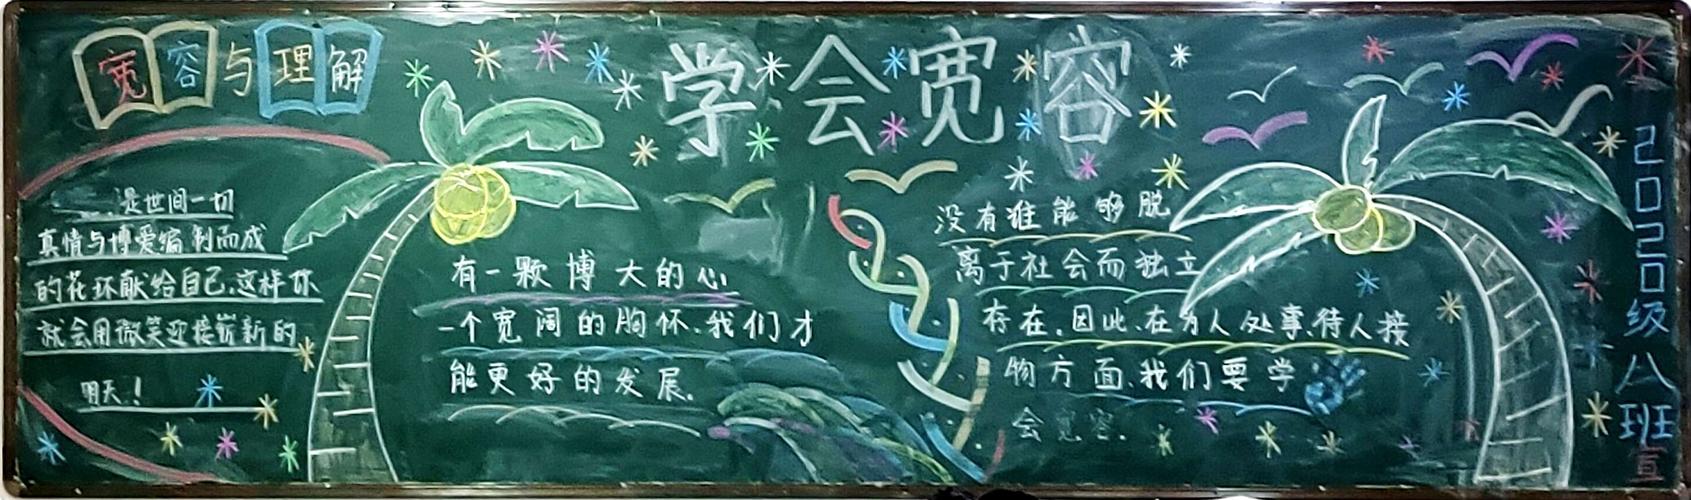 宽容与理解
学会宽容
是世间一切
真情与博爱编制而成
的花环献给自己.这样你
就会用微笑迎接崭新的
明天！
有一颗博大的心
一个宽阔的胸怀.我们才
能更好的发展.
没有谁能够脱
离于社会而独立
存在.因此.在为人处事.待人接
物方面.我们要学
会宽容.
2020级八班宣